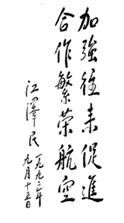 加強往来促進
合作繁荣航空
江澤民
一九九二年
九月十五日